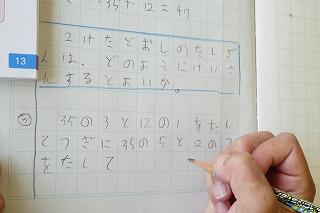 35+12=47
13
2けたどおしのたしざ
んは、どのようにけいさ
んするとよいか。
35の3と12の1をたし
てつぎに35の5と12の2
をたして